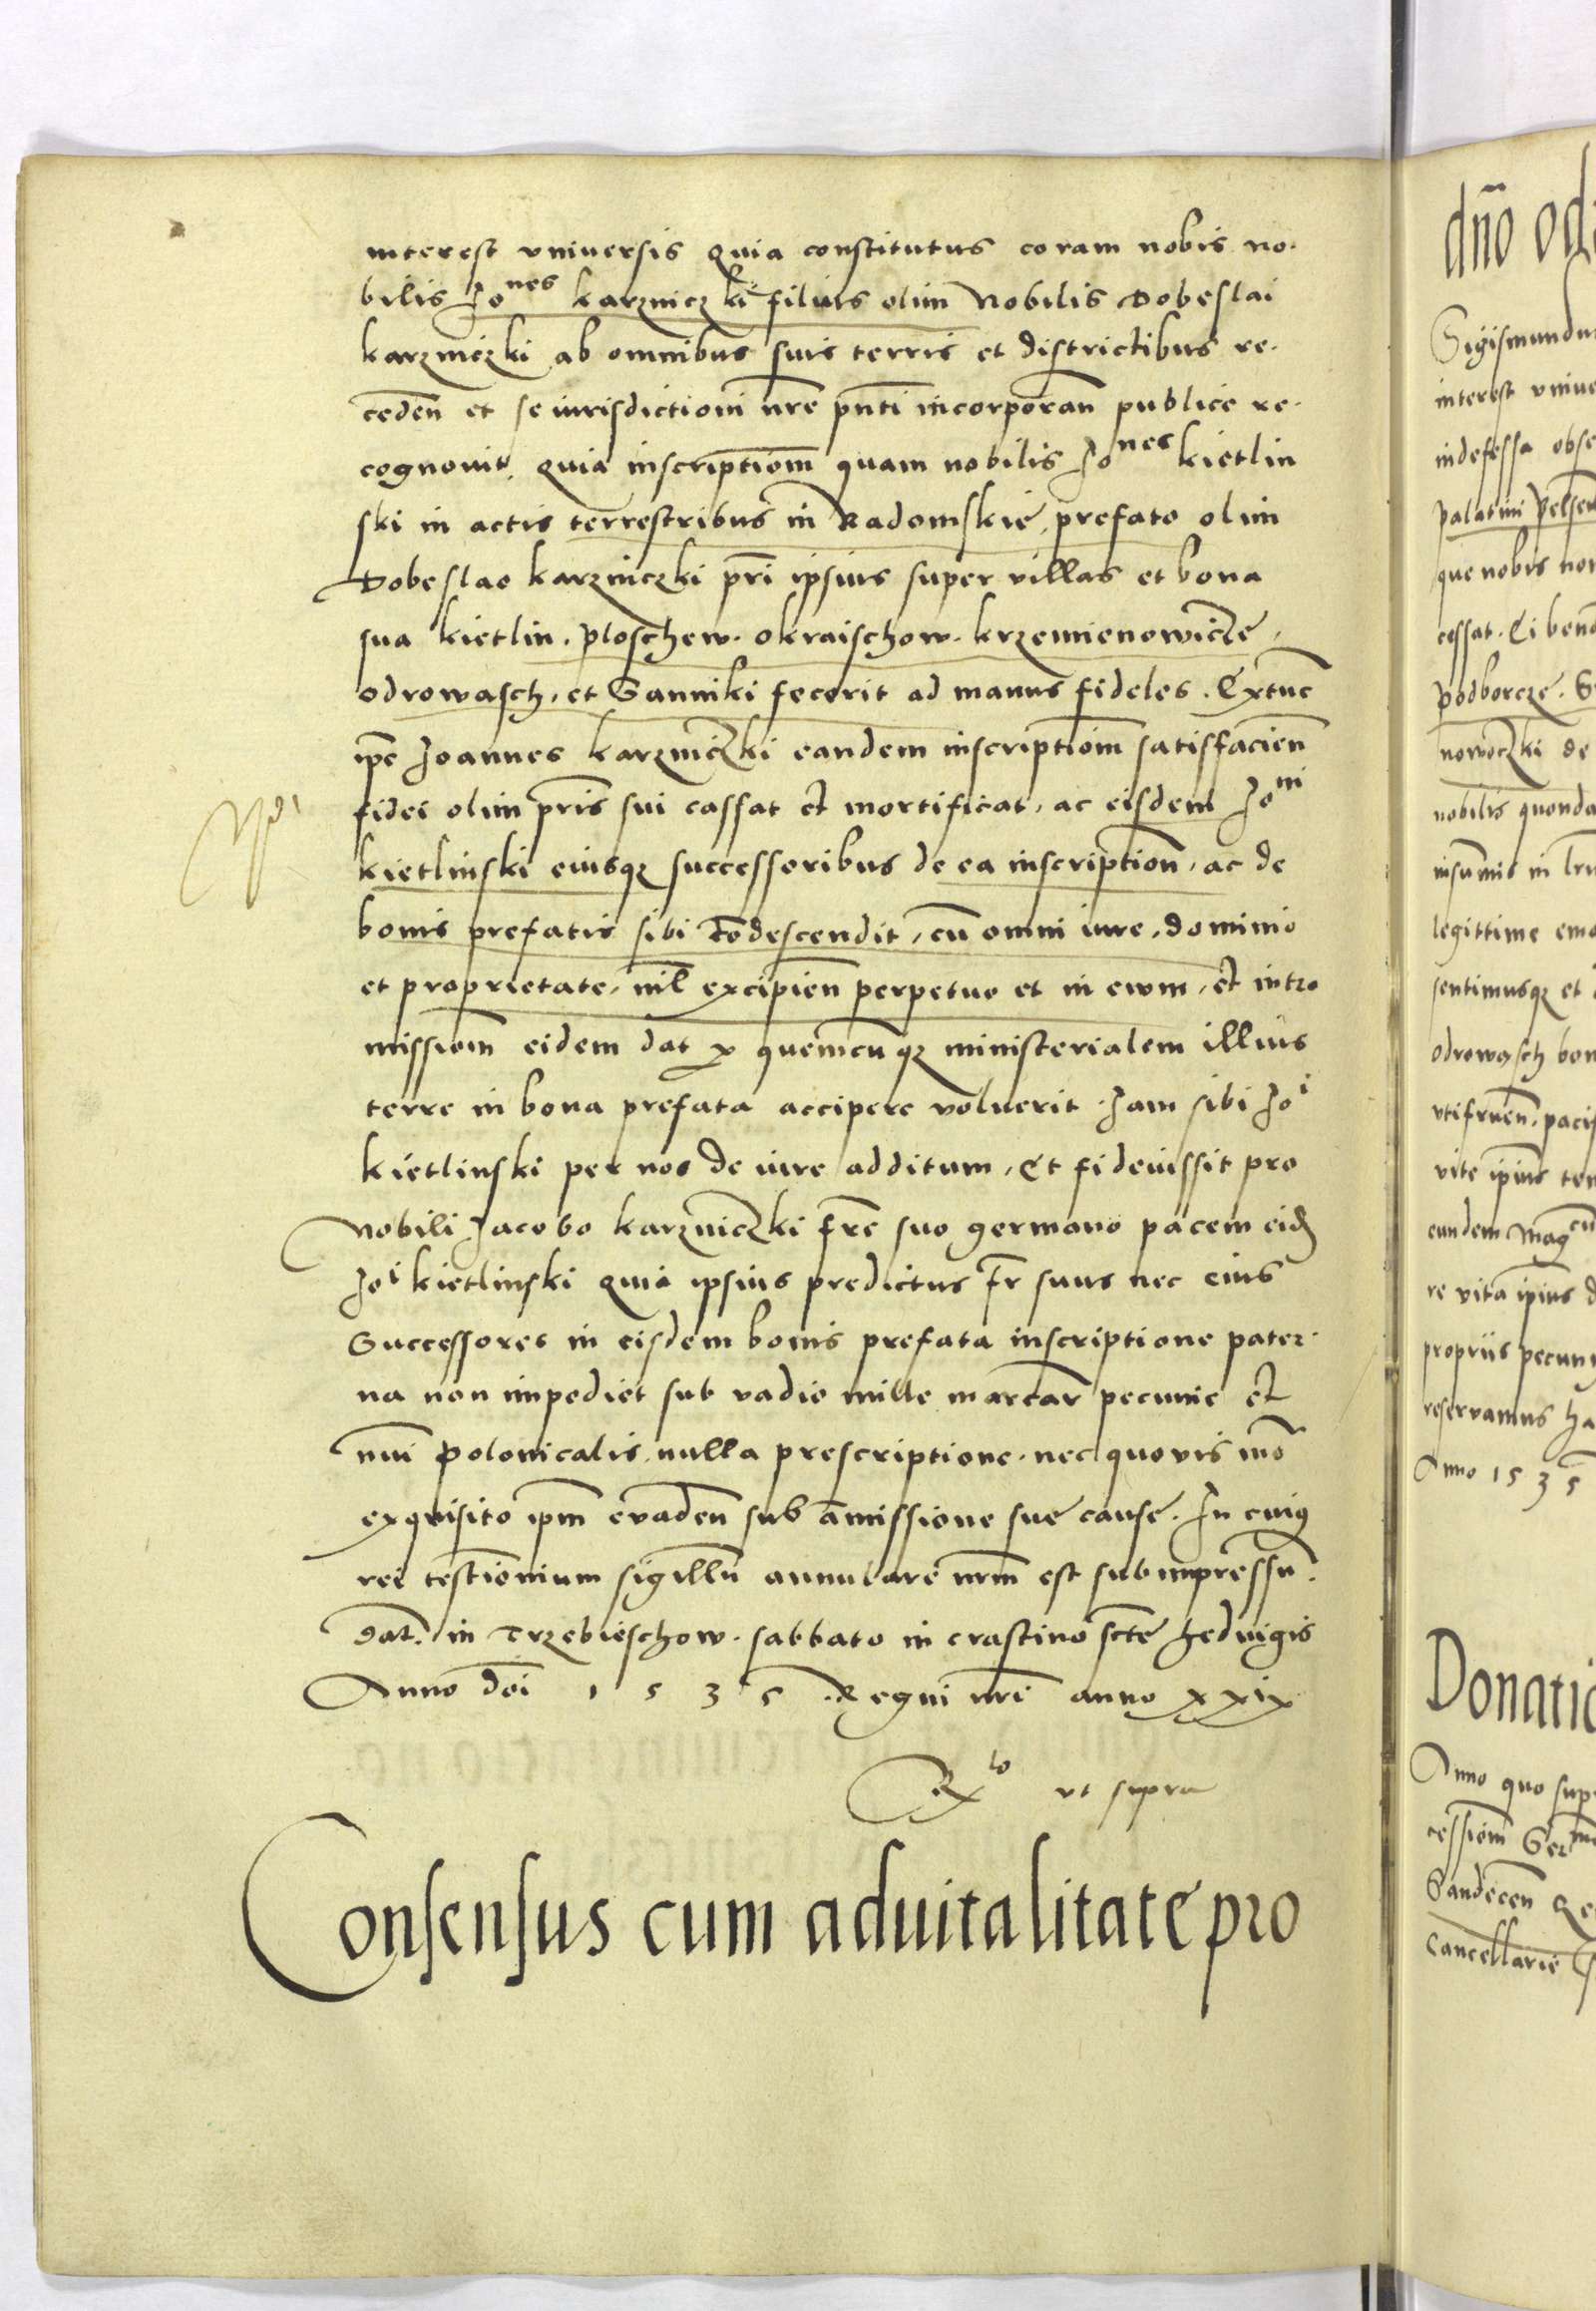 interest vniuersis quia constitutus coram nobis no-
bilis Jo^nes karzniczki filius olim Nobilis Dobeslai
karzniczki ab omnibus suis terris et districtibus re-
ceden̄ et se iurisdictioni nr̄e pn̄ti incorporan̄ publice re-
cognouit, quia inscriptiom̄ quam nobilis Jo^nes kietlin
ski in actis terrestribus in Radomskie, prefato olim
Dobeslao karzniczki pr̄i ipsius super villas et bona
sua kietlin. ploschew. okraischow. krzemienowicze,
odrowasch, et Sanniki fecerit ad manus fideles. Extūc
ip̄e Joannes karzniczki eandem inscriptiom̄ satisfacien̄
fidei olim pr̄is sui cassat et mortificat, ac eisdem Jo^ni
kietlinski eiusq₃ successoribus de ea inscription̄, ac de
bonis prefatis sibi cōdescendit, cū omni iure, dominio
et proprietate, nil̄ excipien̄ perpetuo et in ewm, et intro
missiom̄ eidem dat p quemcūq₃ ministerialem illius
terre in bona prefata accipere voluerit. Jam sibi Jo^i
kietlinski per nos de iure additum, Et fideiussit pro
Nobili Jacobo karzniczki fr̄e suo germano pacem eid₃
Jo^i kietlinski quia ipsius predictus fr̄ suus nec eius
Successores in eisdem bonis prefata inscriptione pater-
na non impediet sub vadio mille marcar̄ pecunie et
nūi Polonicalis, nulla prescriptione. nec quovis mō
exquisito ipm̄ evaden̄ sub āmissione sue cause. In cuiq
rei testīonium sigillū annulare nrm̄ est subimpressū.
Dat̄. in Trzebieschow. sabbato in crastino scte hedvigis
Anno dn̄i 1 5 3 5 . Regni nrī anno xxix
R^lo vt supra
Consensus cum aduitalitate pro
dn̄o od
Sigismundu
interest vniue
indefessa obse
palatini pelsen
que nobis non
cessat. Ei bene
podborcze. S
nowoczki de
nobilis quonda
insum̄is in
legittime ema
sentimusq₃ et
odrowasch bon
vtifruen̄. paci
vite ipīus tem
eundem Mag^cu
re vita ipīus d
propriis pecuny
reservamus ha
Anno 1535
Donatio
Anno quo sup
cessiom̄ Ser^mo
Sandecen̄ Re
Cancellarie